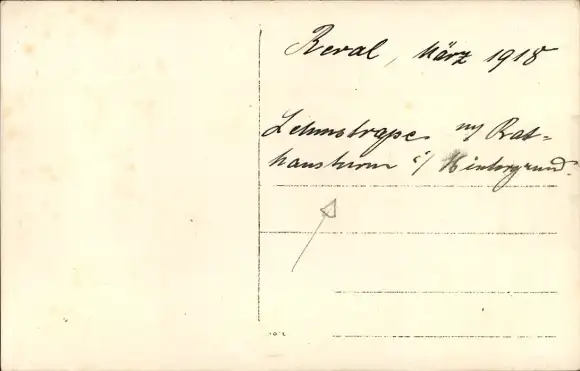 Reval, März 1918
Lehmstrasse m/ Rat=
hausturm i/ Hintergrund.